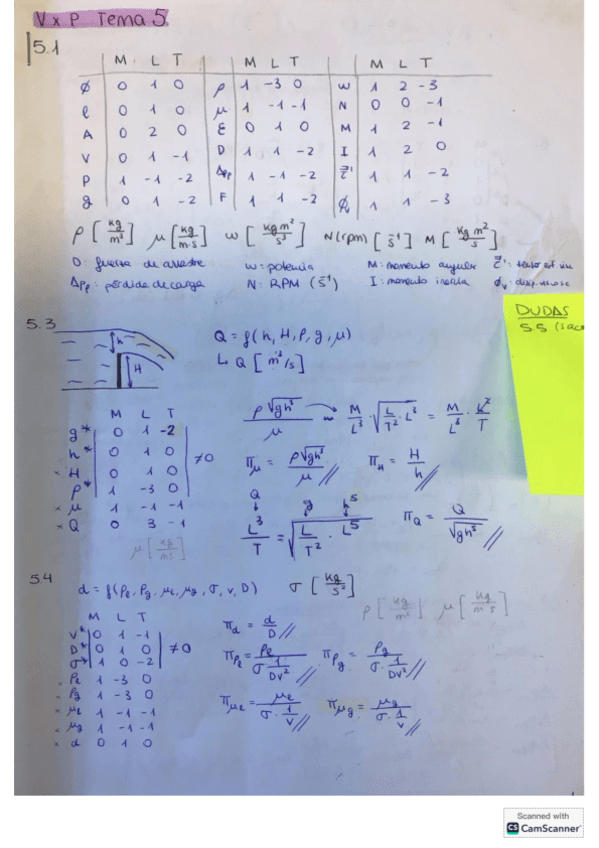 V x P Tema 5.
5.1
M L T M L T M L T
ϕ 0 1 0 ρ 1 -3 0 w 1 2 -3
ℓ 0 1 0 μ 1 -1 -1 N 0 0 -1
A 0 2 0 ε 0 1 0 M 1 2 -1
V 0 1 -1 D 1 1 -2 I 1 2 0
P 1 -1 -2 ΔPp 1 -1 -2 1 1 -2
g 0 1 -2 F 1 1 -2 ϕv 1 1 -3
ρ [kg/m³] μ [kg/m·s] w [kg m²/s³] N(rpm) [s⁻¹] M [kg m²/s]
D: fuerza de arrastre w: potencia M: momento angular
ΔPp: pérdida de carga N: RPM (s⁻¹) I: momento inercia
DUDAS
5.5
5.3
h
H
Q = f(h, H, ρ, g, μ)
↳ Q [m³/s]
M L T
g* 0 1 -2
h* 0 1 0
x H 0 1 0
ρ* 1 -3 0
x μ 1 -1 -1
x Q 0 3 -1
≠0
μ [kg/m·s]
ρ√gh³/μ → M/L³ · √L/T² · L³ = M/L³ · L²/T
πμ = ρ√gh³/μ // πH = H/h //
Q g h⁵
L³/T = √L/T² · L⁵ πQ = Q/√gh⁵ //
5.4
d = f(ρℓ, ρg, μℓ, μg, σ, v, D) σ [kg/s²]
ρ [kg/m³] μ [kg/m·s]
M L T
v* 0 1 -1
D* 0 1 0
σ* 1 0 -2
≠0
x ρℓ 1 -3 0
x ρg 1 -3 0
x μℓ 1 -1 -1
x μg 1 -1 -1
x d 0 1 0
πd = d/D //
πρℓ = ρℓ/σ · 1/Dv² // πρg = ρg/σ · 1/Dv² //
πμℓ = μℓ/σ · 1/v // πμg = μg/σ · 1/v //
Scanned with
CS CamScanner